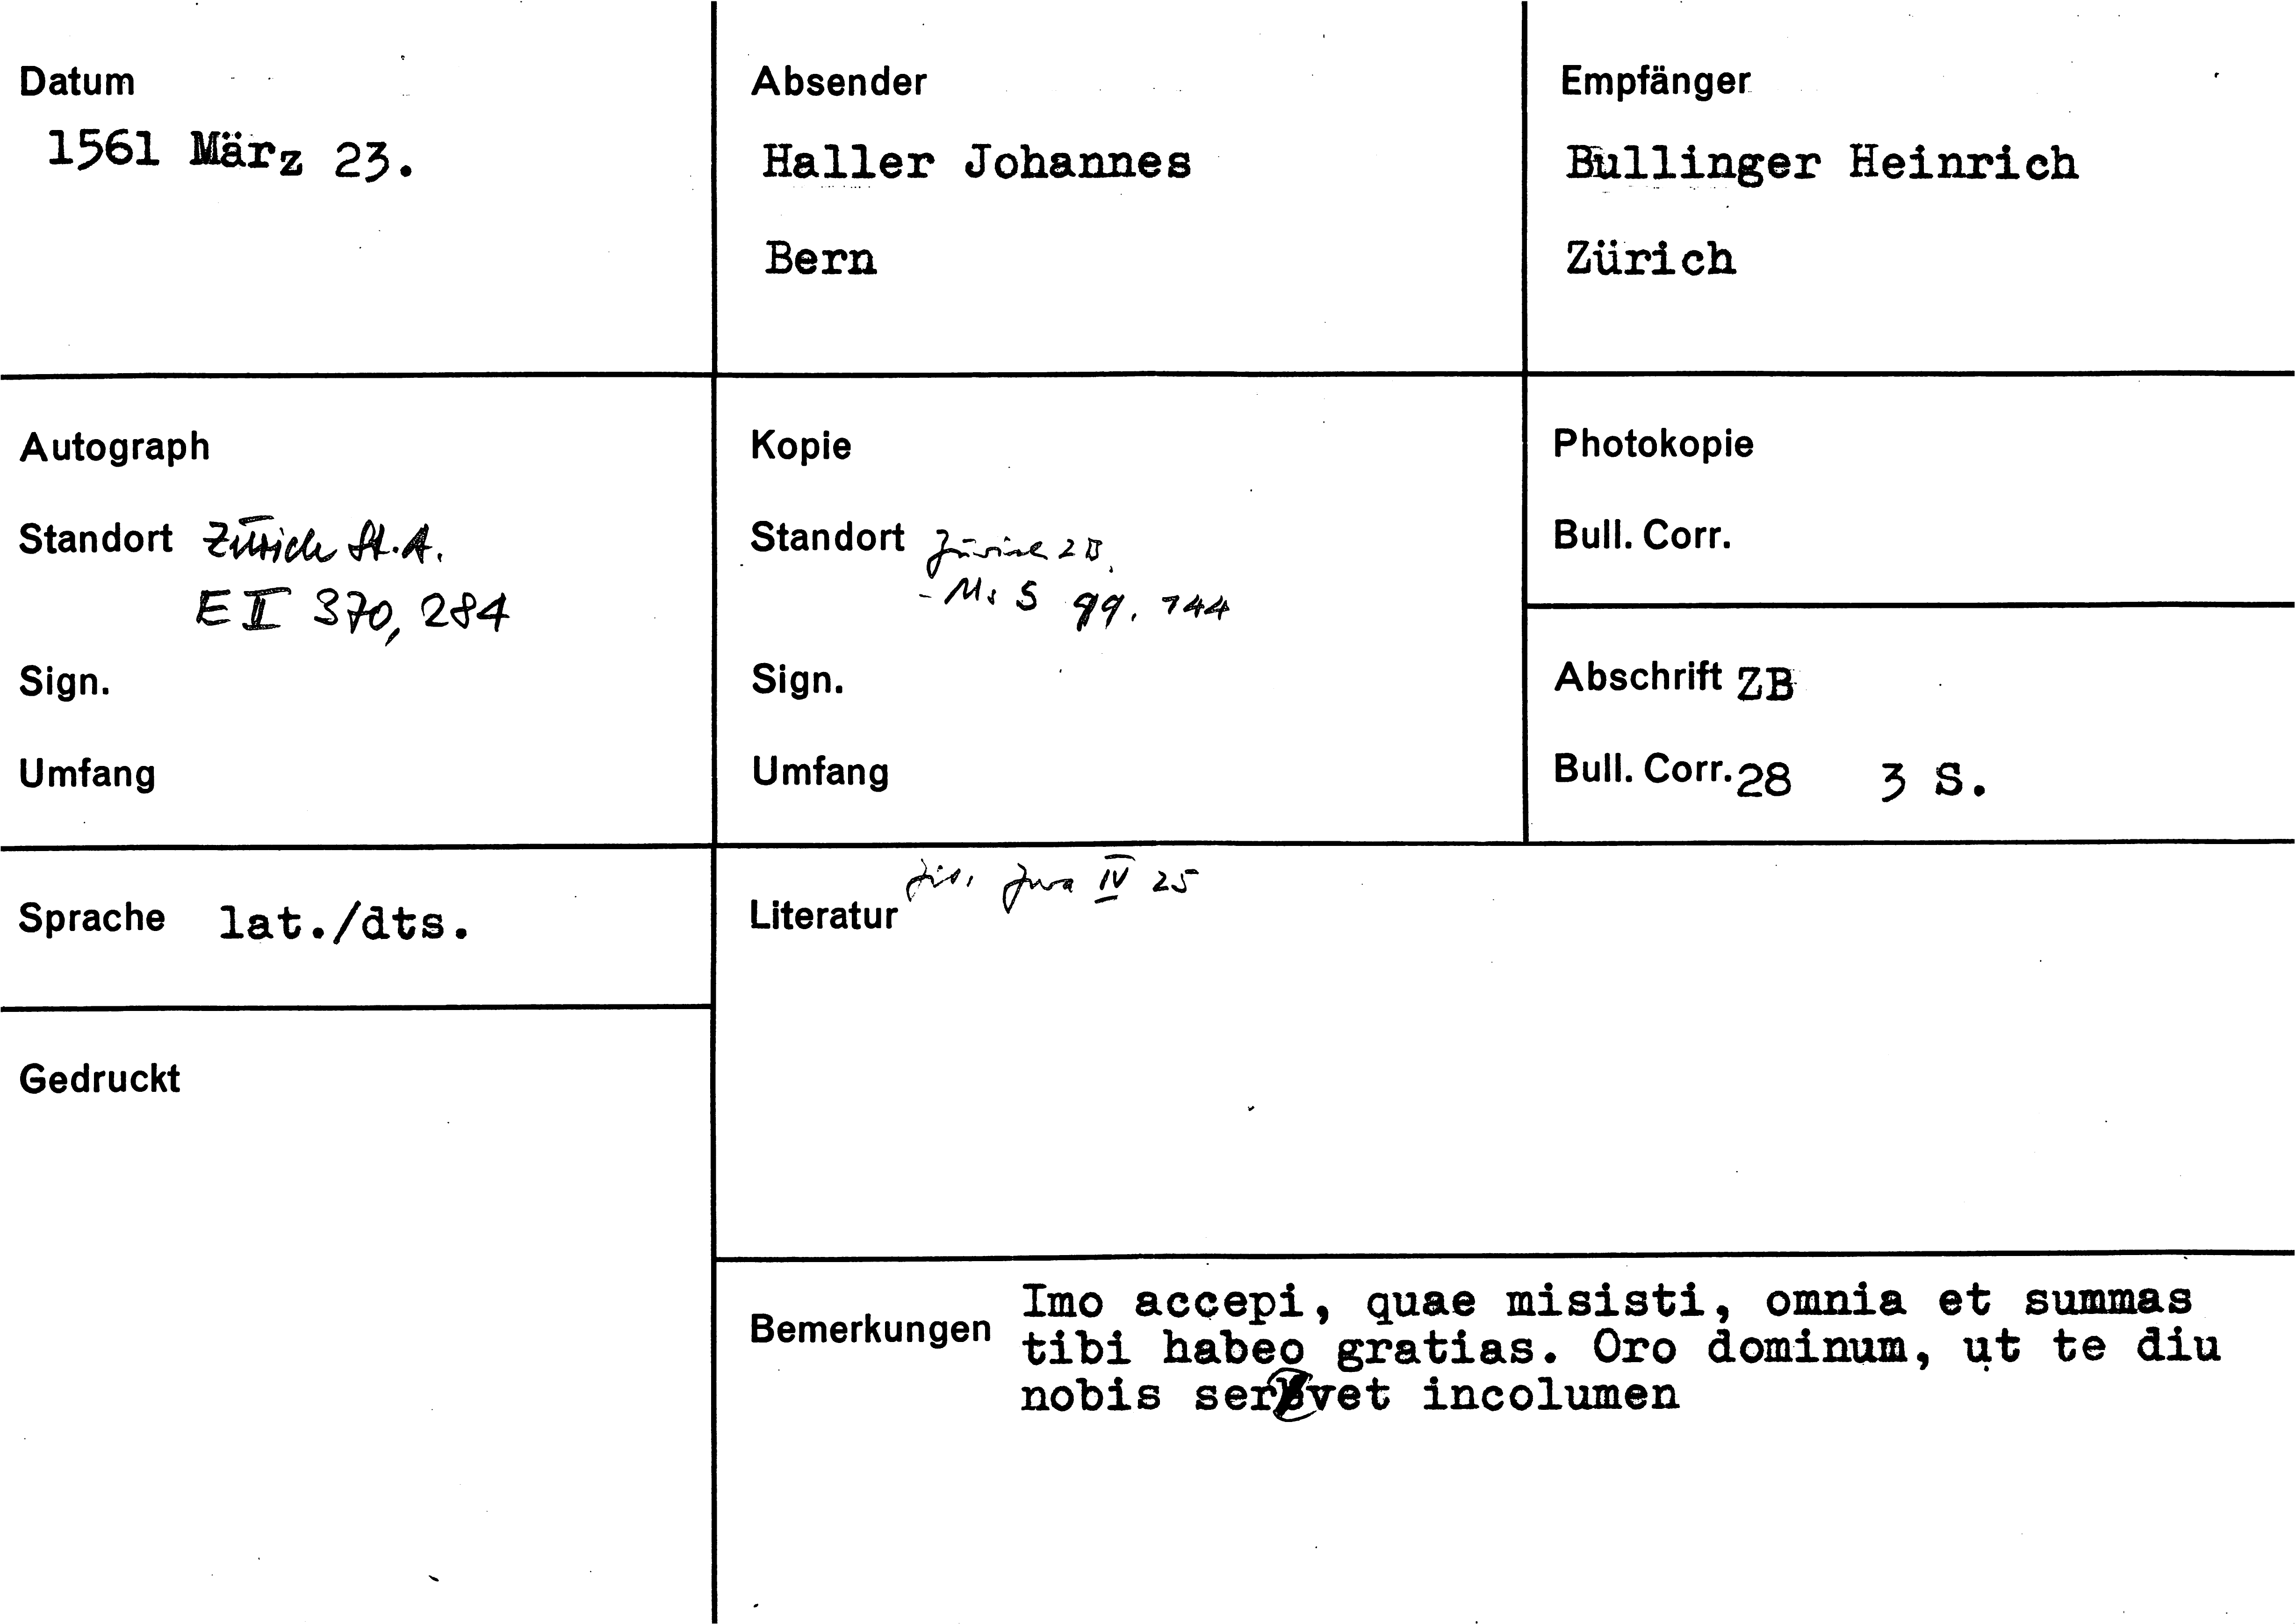 Datum
1561 März 23.
Absender
Haller Johannes
Bern
Empfänger
Bullinger Heinrich
Zürich
Autograph
Standort Zürich St.A.
E II 370, 284
Sign.
Umfang
Kopie
Standort Zürich ZB,
- Ms S 99, 144
Sign.
Umfang
Photokopie
Bull. Corr.
Abschrift ZB
Bull. Corr. 28 3 S.
Sprache lat./dts.
Gedruckt
Literatur
IV 25
Bemerkungen
Imo accepi, quae misisti, omnia et summas
tibi habeo gratias. Oro dominum, ut te diu
nobis servet incolumen